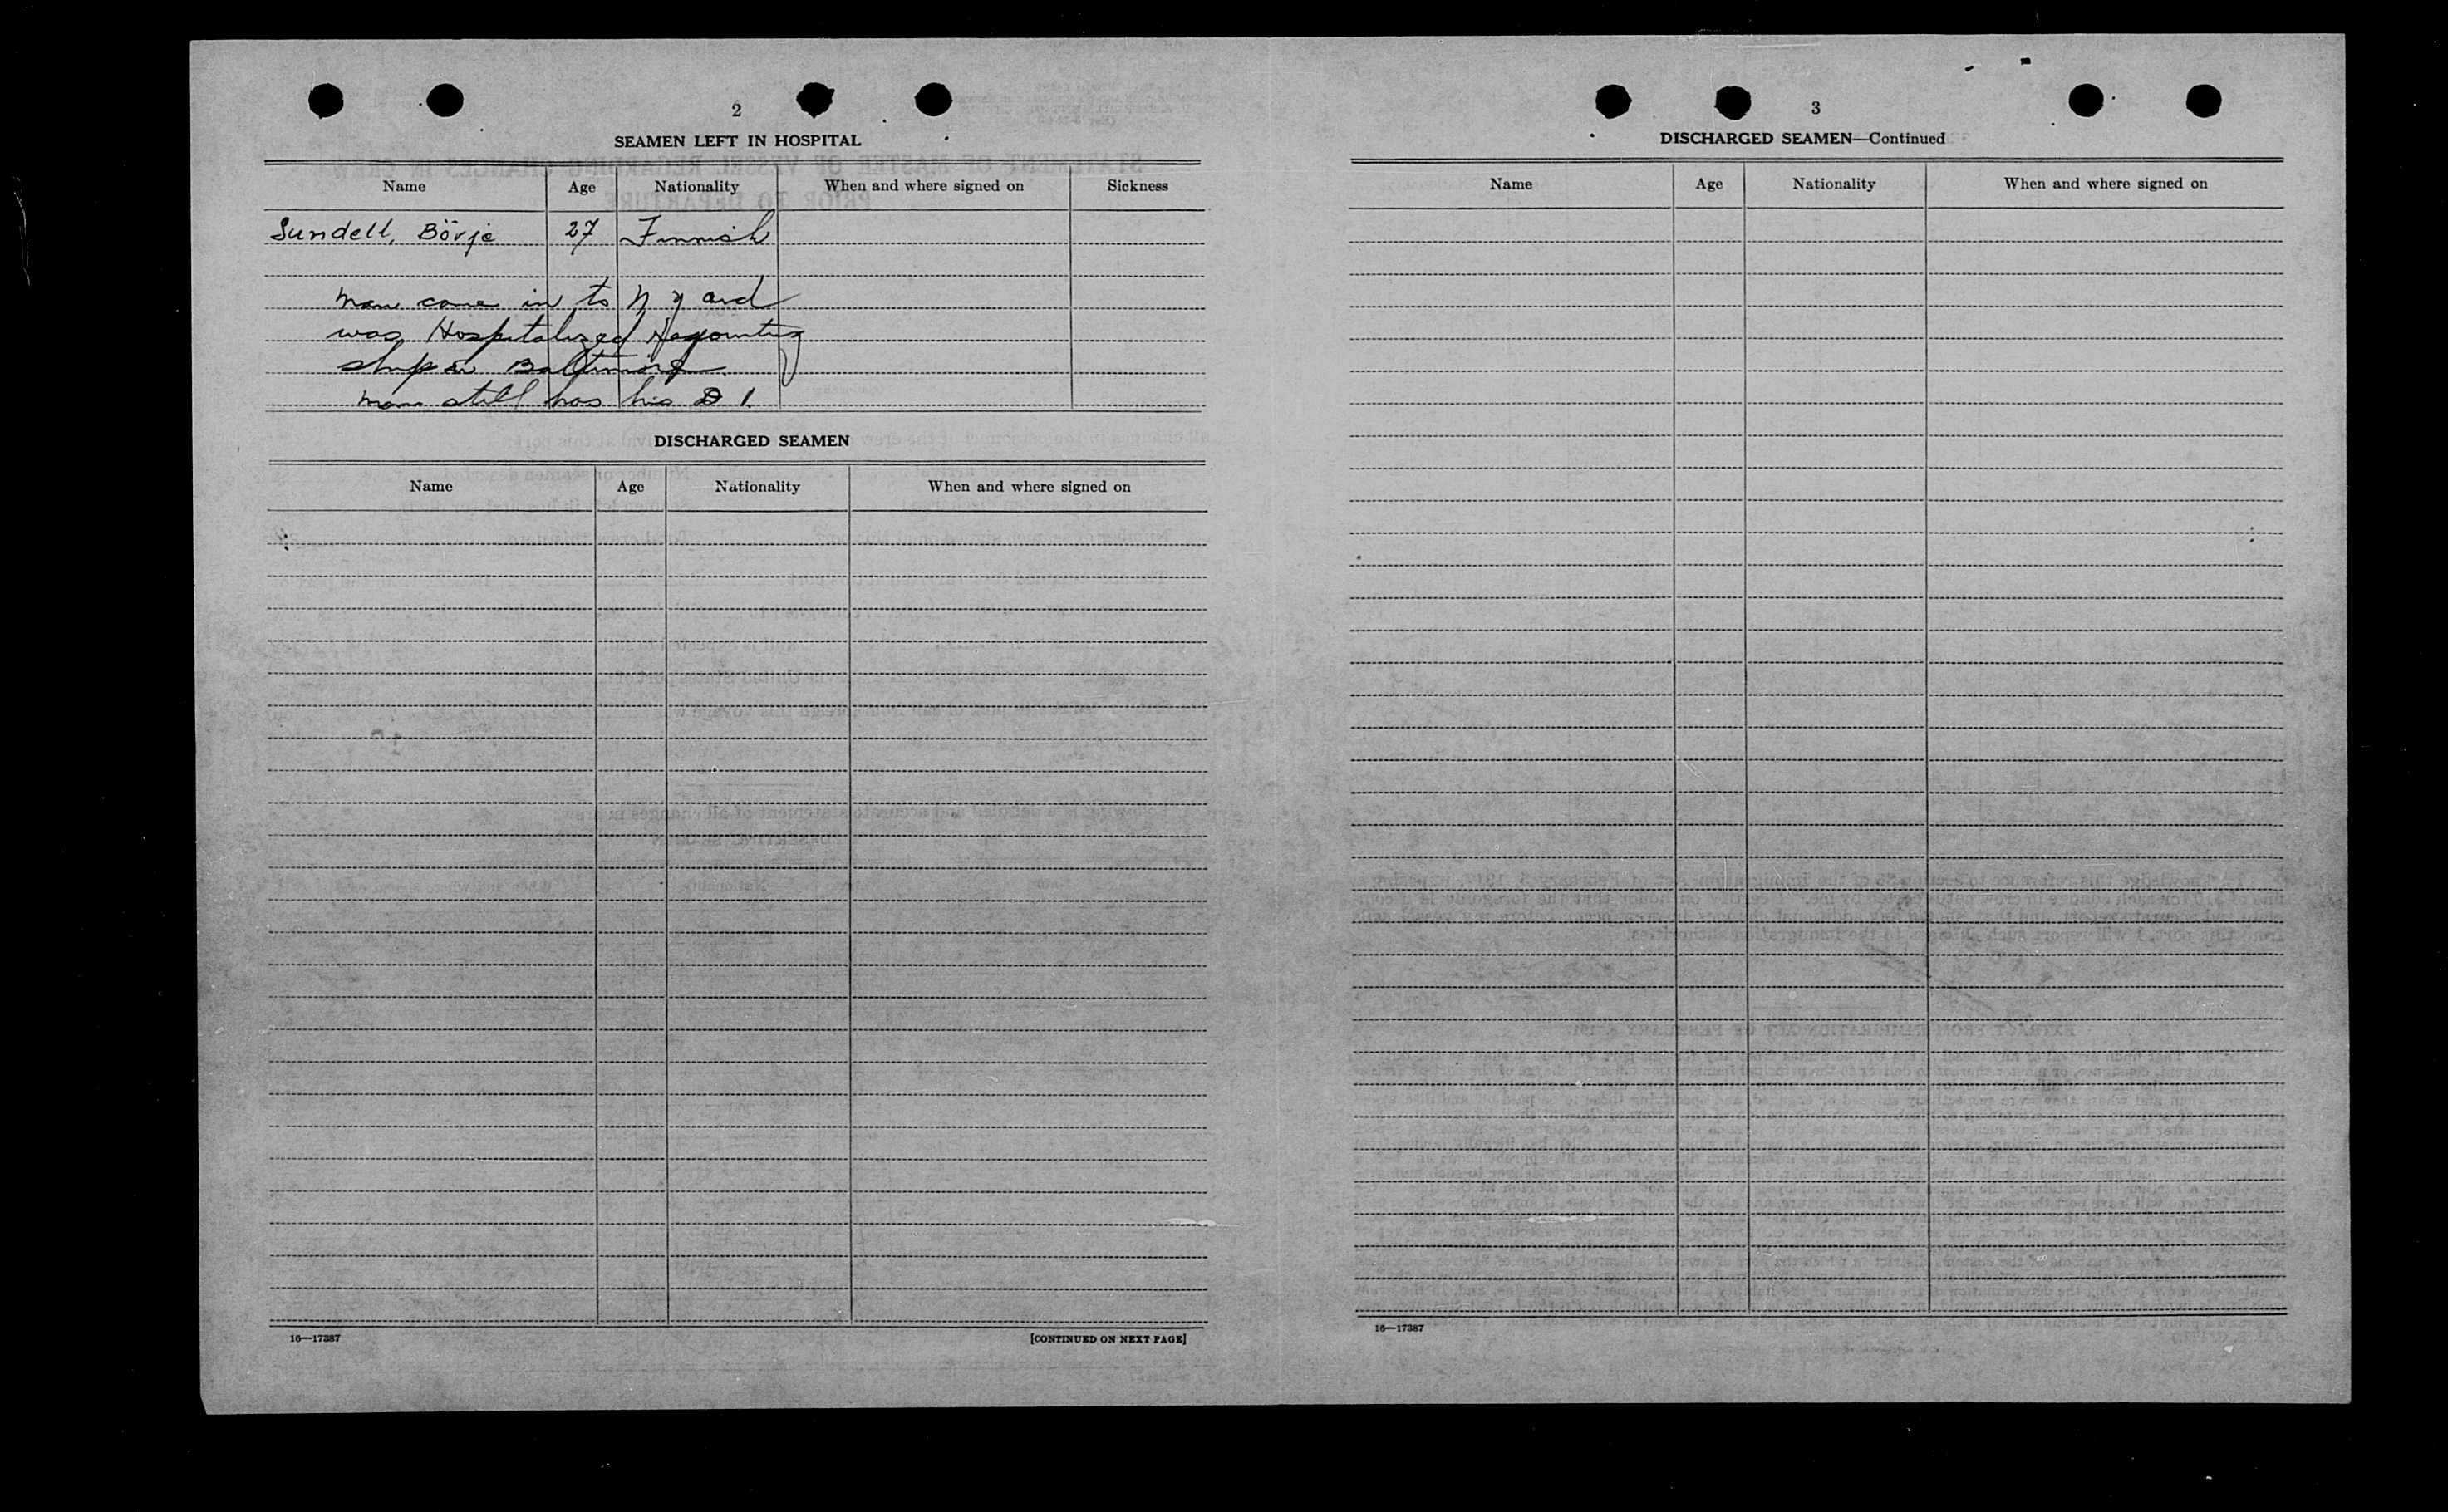 2
SEAMEN LEFT IN HOSPITAL
Name Age Nationality When and where signed on Sickness
Sundell, Börje 27 Finnish
man came in to N Y and
was Hospitalized
ship in Baltimore.
man still has his D 1.
DISCHARGED SEAMEN
Name Age Nationality When and where signed on
16—17387 [CONTINUED ON NEXT PAGE]
3
DISCHARGED SEAMEN—Continued
Name Age Nationality When and where signed on
16—17387